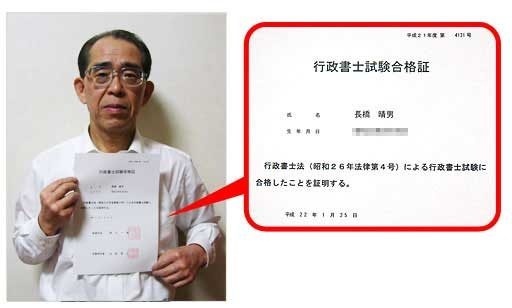 平成21年度 第 4131号
行政書士試験合格証
氏 名 長橋 晴男
生年月日
行政書士法（昭和２６年法律第４号）による行政書士試験に
合格したことを証明する。
平成 22 年 1 月 25 日
行政書士試験合格証